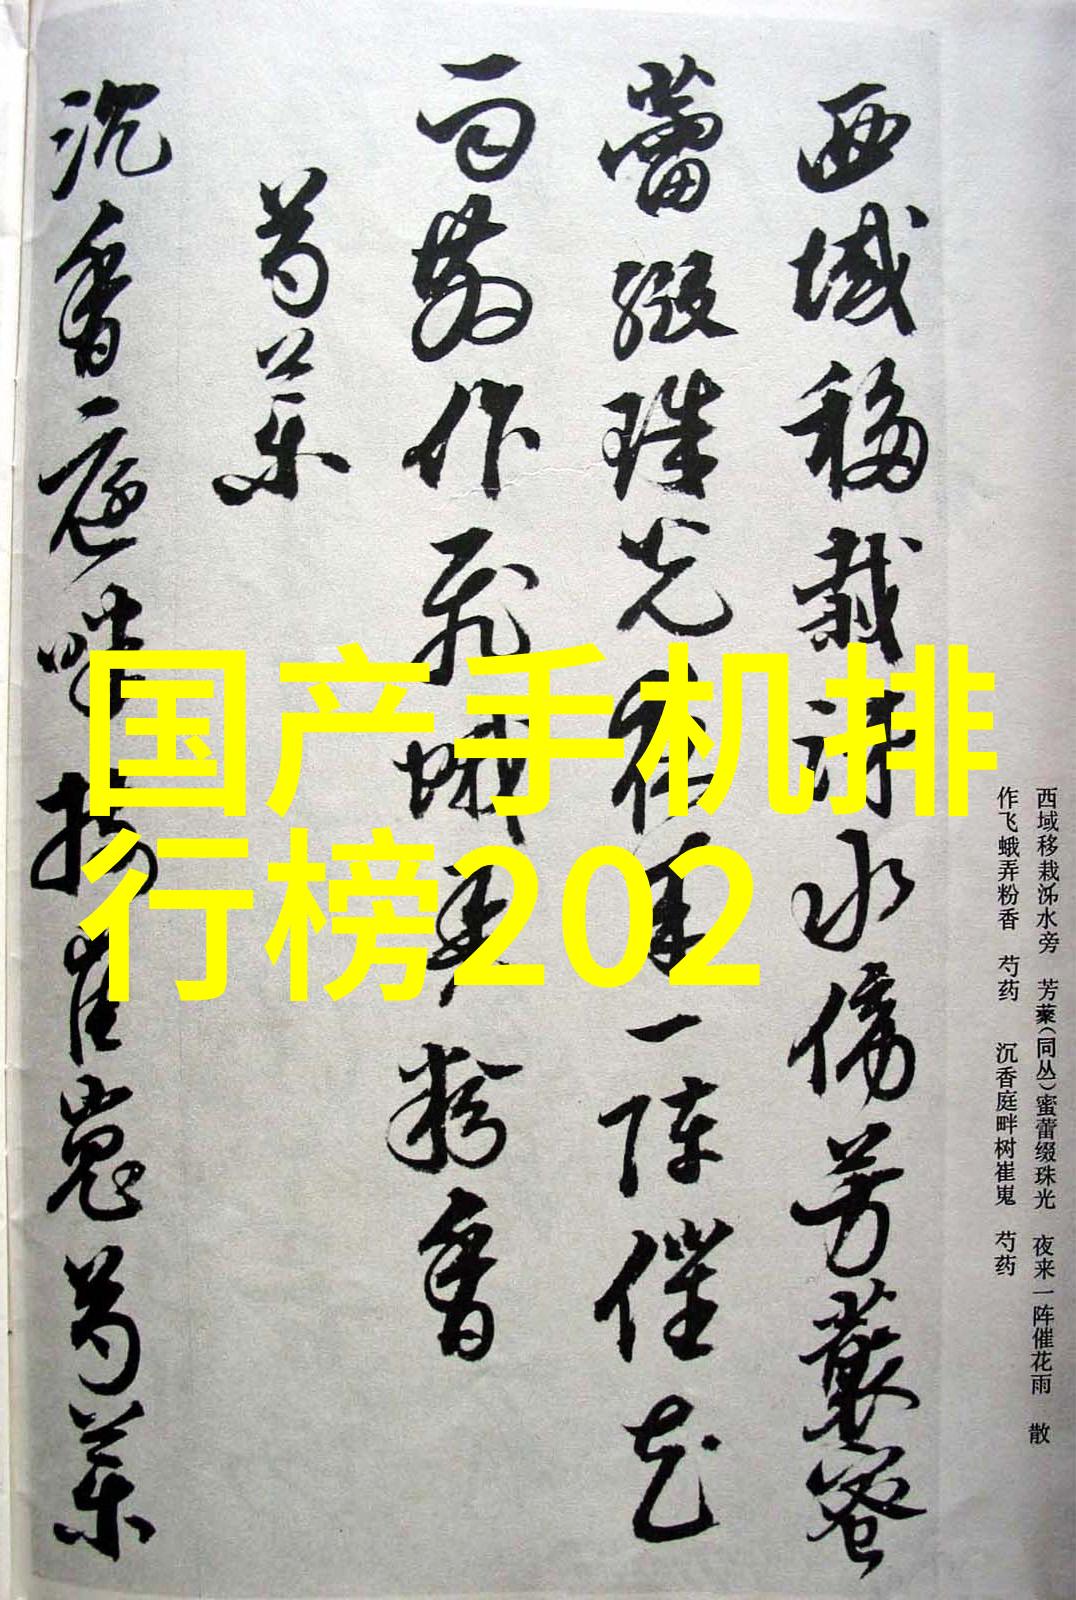 西域移栽泺水傍芳藂蜜
蕾缀珠光夜来一阵催花
雨散作飞蛾弄粉香
芍药
沉香庭畔树崔嵬芍药
国产手机排
行榜202
西域移栽泺水旁 芳藂(同丛)蜜蕾缀珠光 夜来一阵催花雨 散
作飞蛾弄粉香 芍药 沉香庭畔树崔嵬 芍药